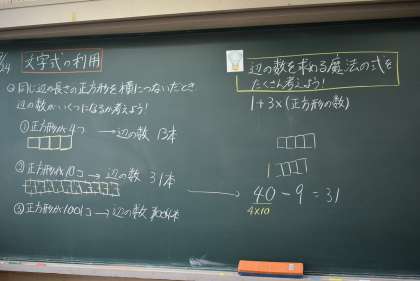 文字式の利用
同じ辺の長さの正方形を横につないだとき
辺の数がいくつになるか考えよう!
①正方形が4つ → 辺の数 13本
②正方形が10コ → 辺の数 31本
③正方形が100コ → 辺の数
辺の数を求める魔法の式を
たくさん考えよう!
1+3×(正方形の数)
40-9=31
4×10